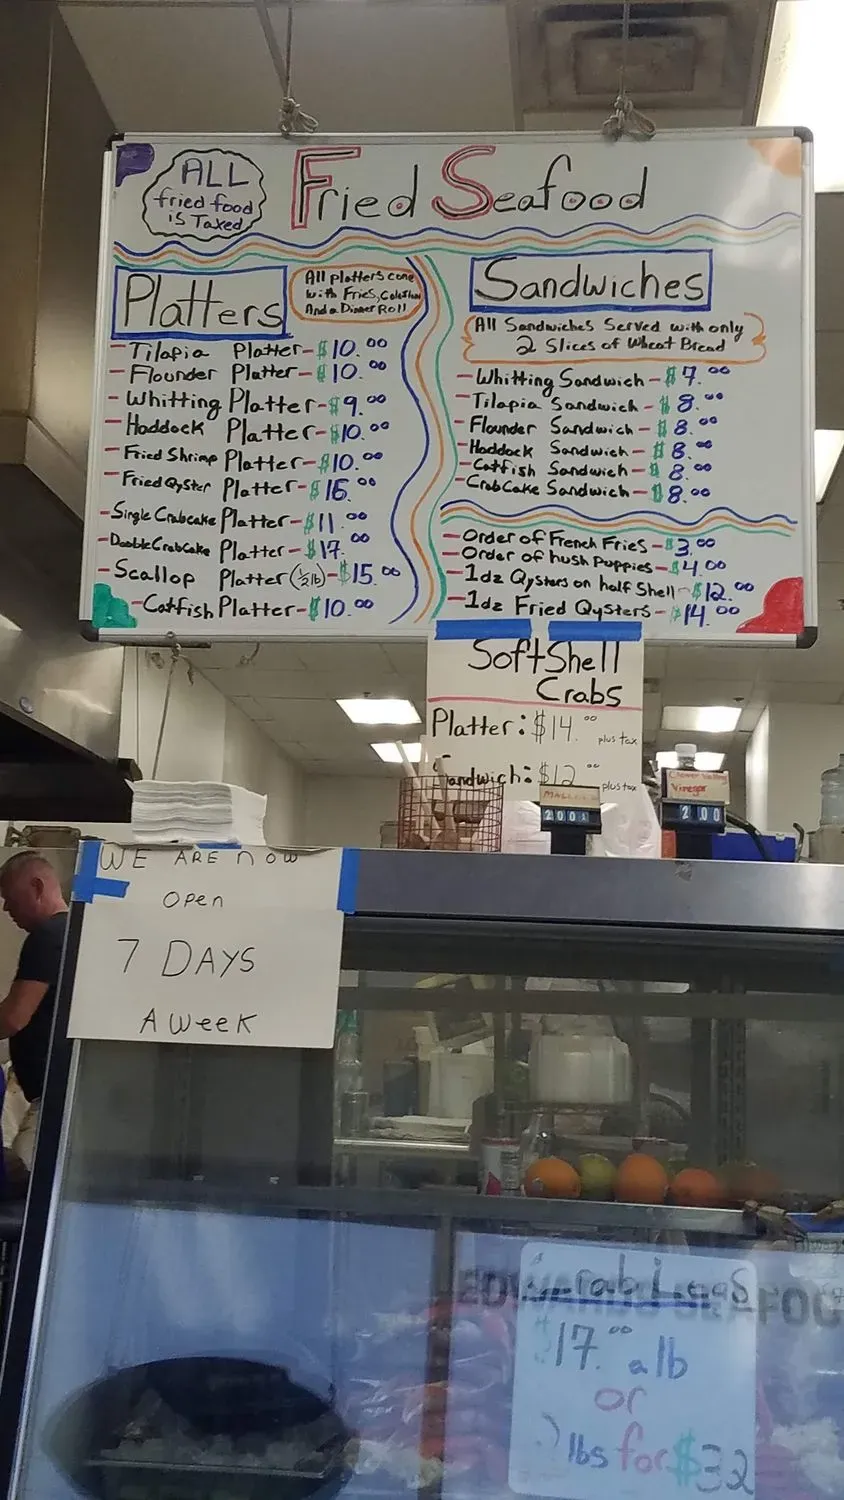 ALL
fried food
is Taxed
Fried Seafood
Platters
All platters come
with Fries, Coleslaw
And a Dinner Roll
- Tilapia Platter - $10.00
- Flounder Platter - $10.00
- Whitting Platter - $9.00
- Haddock Platter - $10.00
- Fried Shrimp Platter - $10.00
- Fried Oyster Platter - $15.00
- Single Crabcake Platter - $11.00
- Double CrabCake Platter - $17.00
- Scallop Platter (1/2 lb) - $15.00
- Catfish Platter - $10.00
Sandwiches
All Sandwiches Served with only
2 Slices of Wheat Bread
- Whitting Sandwich - $7.00
- Tilapia Sandwich - $8.00
- Flounder Sandwich - $8.00
- Haddock Sandwich - $8.00
- Catfish Sandwich - $8.00
- CrabCake Sandwich - $8.00
- Order of French Fries - $3.00
- Order of hush puppies - $4.00
- 1dz Oysters on half Shell - $12.00
- 1dz Fried Oysters - $14.00
SoftShell
Crabs
Platter: $14.00 plus tax
Sandwich: $12.00 plus tax
Vinegar
2 00
WE ARE nOW
Open
7 DAYS
A Week
Crab Legs
$17.00 a lb
or
lbs for $32